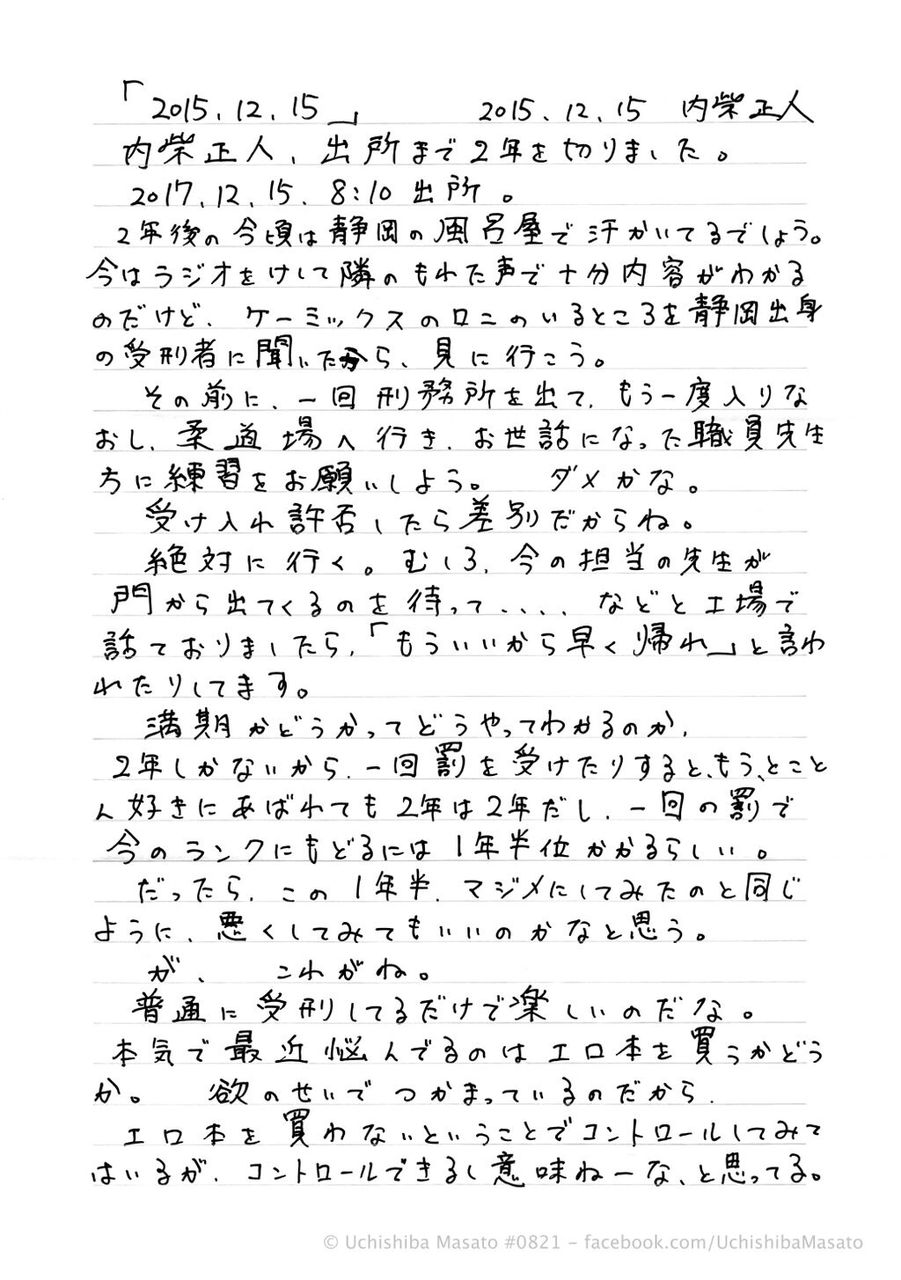 「2015.12.15」 2015.12.15 内柴正人
内柴正人、出所まで2年を切りました。
2017.12.15.8:10出所。
2年後の今頃は静岡の風呂屋で汗かいてるでしょう。
今はラジオをけして隣のもれた声で十分内容がわかる
のだけど、ケーミックスのロニのいるところを静岡出身
の受刑者に聞いたから、見に行こう。
その前に、一回刑務所を出て、もう一度入りな
おし、柔道場へ行き、お世話になった職員先生
方に練習をお願いしよう。 ダメかな。
受け入れ許否したら差別だからね。
絶対に行く。むしろ、今の担当の先生が
門から出てくるのを待って、、、、などと工場で
話ておりましたら、「もういいから早く帰れ」と言わ
れたりしてます。
満期かどうかってどうやってわかるのか、
2年しかないから、一回罰を受けたりすると、もう、とこと
ん好きにあばれても2年は2年だし、一回の罰で
今のランクにもどるには1年半位かかるらしい。
だったら、この1年半、マジメにしてみたのと同じ
ように、悪くしてみてもいいのかなと思う。
が、 これがね。
普通に受刑してるだけで楽しいのだな。
本気で最近悩んでるのはエロ本を買うかどう
か。 欲のせいでつかまっているのだから、
エロ本を買わないということでコントロールしてみて
はいるが、コントロールできるし意味ねーな、と思ってる。
© Uchishiba Masato #0821 – facebook.com/UchishibaMasato